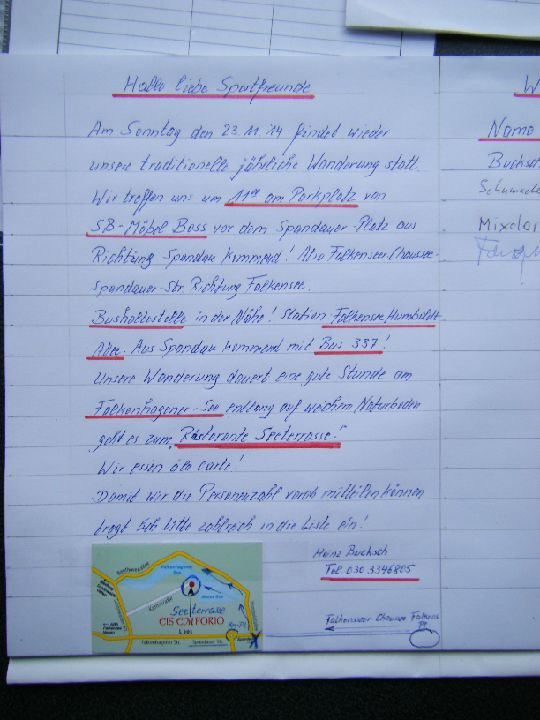 Hallo liebe Sportfreunde
Am Sonntag den 23.11.14 findet wieder
unsere traditionelle jährliche Wanderung statt.
Wir treffen uns um 11°° am Parkplatz von
SB-Möbel Boss vor dem Spandauer-Platz aus
Richtung Spandau kommend! Also Falkenseer Chaussee-
Spandauer-Str. Richtung Falkensee.
Bushaltestelle in der Nähe! Station Falkensee, Humboldt
Allee. Aus Spandau kommend mit Bus 337!
Unsere Wanderung dauert eine gute Stunde am
Falkenhagener-See entlang auf weichem Naturboden
geht es zum "Ristorante Seeterrasse!"
Wir essen à la carte!
Damit wir die Personenzahl vorab mitteilen können
tragt Euch bitte zahlreich in die Liste ein!
Heinz Buchsch
Tel 030 3346805
Seeterrasse
Falkenseer Chaussee
Pl
W
Name
Buchsch